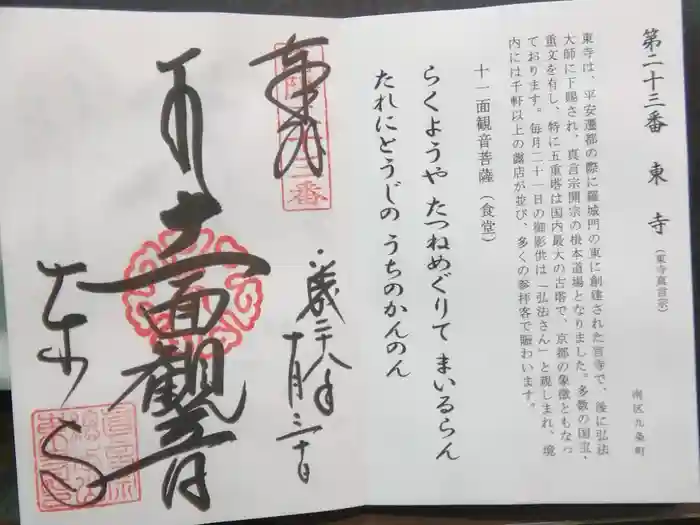 第二十三番 東寺 (東寺真言宗)
南区九条町
東寺は、平安遷都の際に羅城門の東に創建された官寺で、後に弘法
大師に下賜され、真言宗開宗の根本道場となりました。多数の国宝、
重文を有し、特に五重塔は国内最大の古塔で、京都の象徴ともなっ
ております。毎月二十一日の御影供は「弘法さん」と親しまれ、境
内には千軒以上の露店が並び、多くの参拝客で賑わいます。
十一面観音菩薩(食堂)
らくようや たつねめぐりて まいるらん
たれにとうじの うちのかんのん
奉拝
十一面観音
東寺